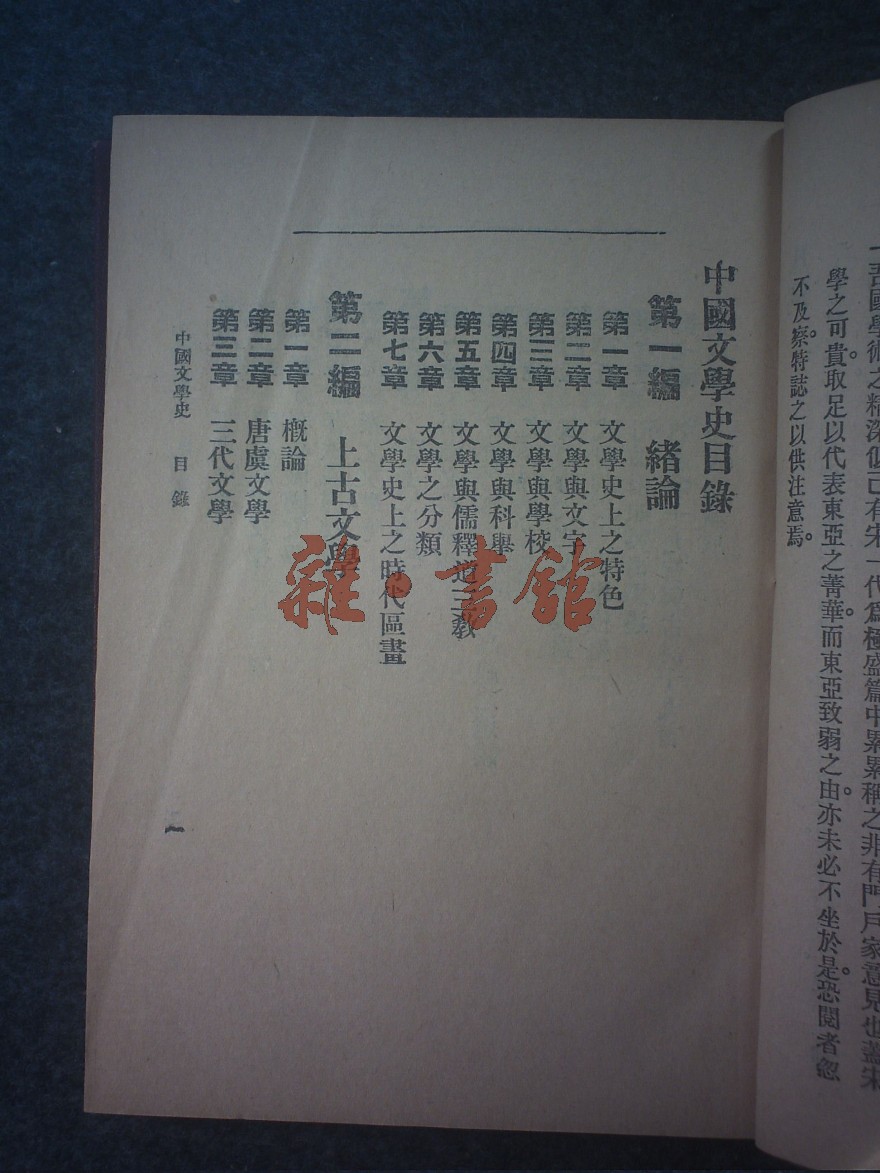 一吾國學術之精深似已有宋一代爲極盛篇中累累稱之非有門戶家意見也蓋宋
學之可貴。取足以代表東亞之菁華。而東亞致弱之由。亦未必不坐於是。恐閱者忽
不及察。特誌之以供注意焉。
中國文學史目錄
第一編 緒論
第一章 文學史上之特色
第二章 文學與文字
第三章 文學與學校
第四章 文學與科舉
第五章 文學與儒釋道三教
第六章 文學之分類
第七章 文學史上之時代區畫
第二編 上古文學
第一章 概論
第二章 唐虞文學
第三章 三代文學
中國文學史 目錄
一
雜·書館